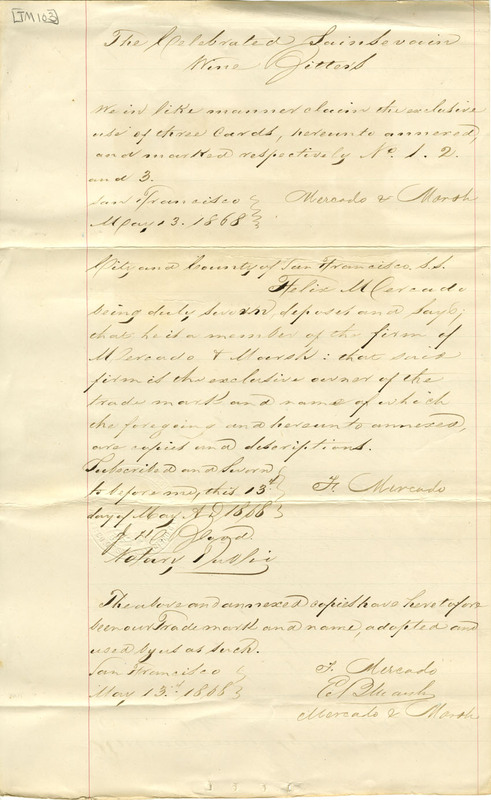 TM103
The Celebrated Sainsevain
Wine Bitters
We in like manner claim the exclusive
use of three Cards, hereunto annexed,
and marked respectively No. 1. 2.
and 3.
San Francisco
Mercado & Marsh
May 13. 1868
City and County of San Francisco, S.S.
Felix Mercado
being duly sworn deposes and says;
that he is a member of the firm of
Mercado & Marsh: that said
firm is the exclusive owner of the
trade mark and name of which
the foregoing and hereunto annexed,
are copies and descriptions.
Subscribed and Sworn
to before me, this 13th
F. Mercado
day of May AD 1868
Notary Public
The above and annexed copies have heretofore
been our Trade mark and name, adopted and
used by us as such.
San Francisco
F. Mercado
May 13th 1868
Marsh
Mercado & Marsh